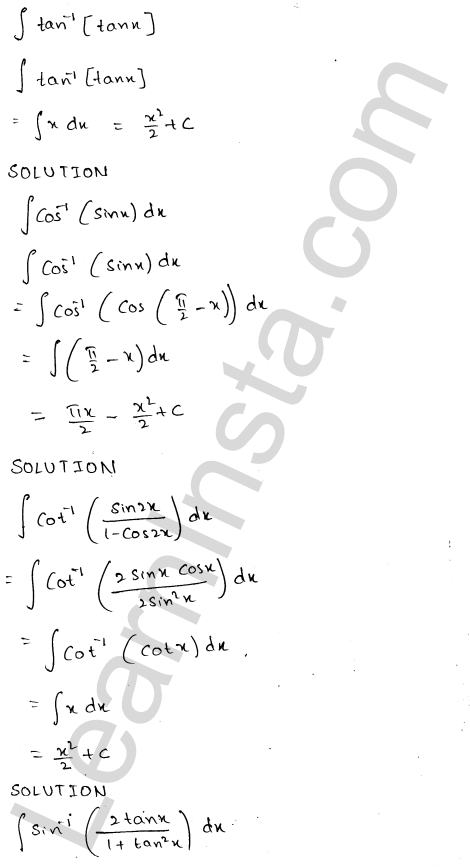 ∫ tan⁻¹ [tanx]
∫ tan⁻¹ [tanx]
= ∫ x dx = x²/2 + C
SOLUTION
∫ Cos⁻¹ (sinx) dx
∫ Cos⁻¹ (sinx) dx
= ∫ Cos⁻¹ (Cos (π/2 - x)) dx
= ∫ (π/2 - x) dx
= πx/2 - x²/2 + C
SOLUTION
∫ Cot⁻¹ (Sin2x / 1-Cos2x) dx
= ∫ Cot⁻¹ (2 Sinx Cosx / 2Sin²x) dx
= ∫ Cot⁻¹ (Cotx) dx .
= ∫ x dx
= x²/2 + C
SOLUTION
∫ Sin⁻¹ (2tanx / 1 + tan²x) dx
LearnInsta.com